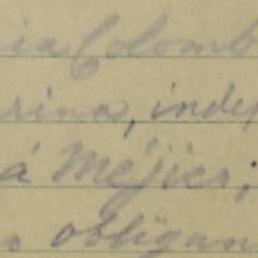 ia Colomb
rina, indep
á Méjico;
s obligan